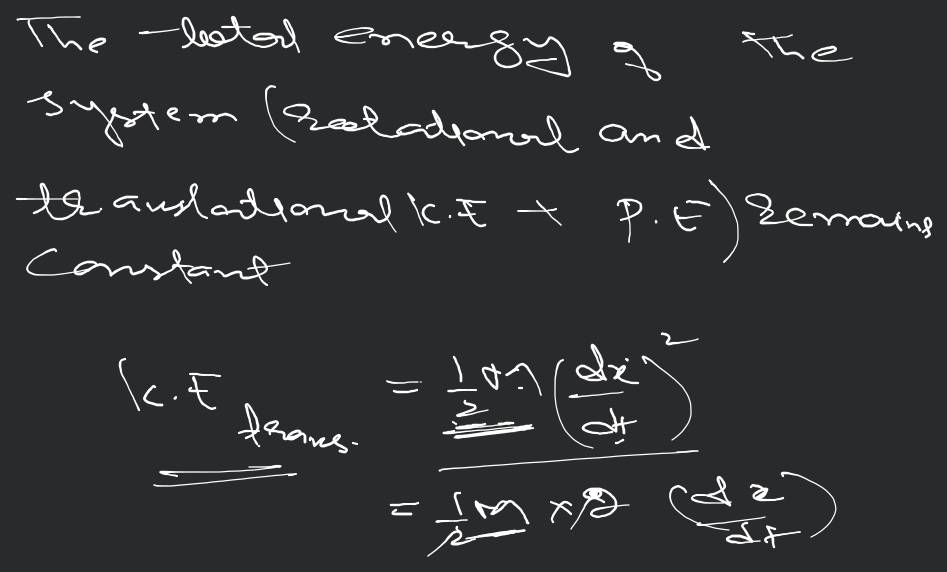 The total energy of the
system (Rotational and
translational K.E + P.E) Remains
Constant
K.E trans. = 1/2 m (dx/dt)²
= 1/2 m × 2 (dx/dt)